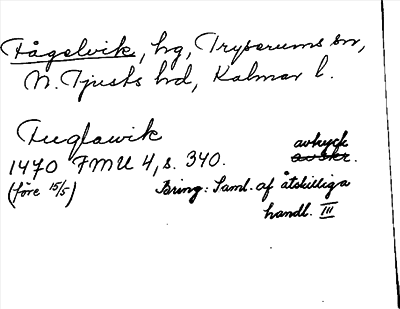 Fågelvik, hg, Tryserums sn,
N. Tjusts hd, Kalmar l.
Fuglawik
1470 FMU 4, s. 340. avtryck
(före 15/5) avskr.
Bring: Saml. af åtskilliga
handl. III